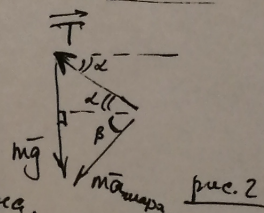 T
α
α
β
mg
ma шара
рис. 2